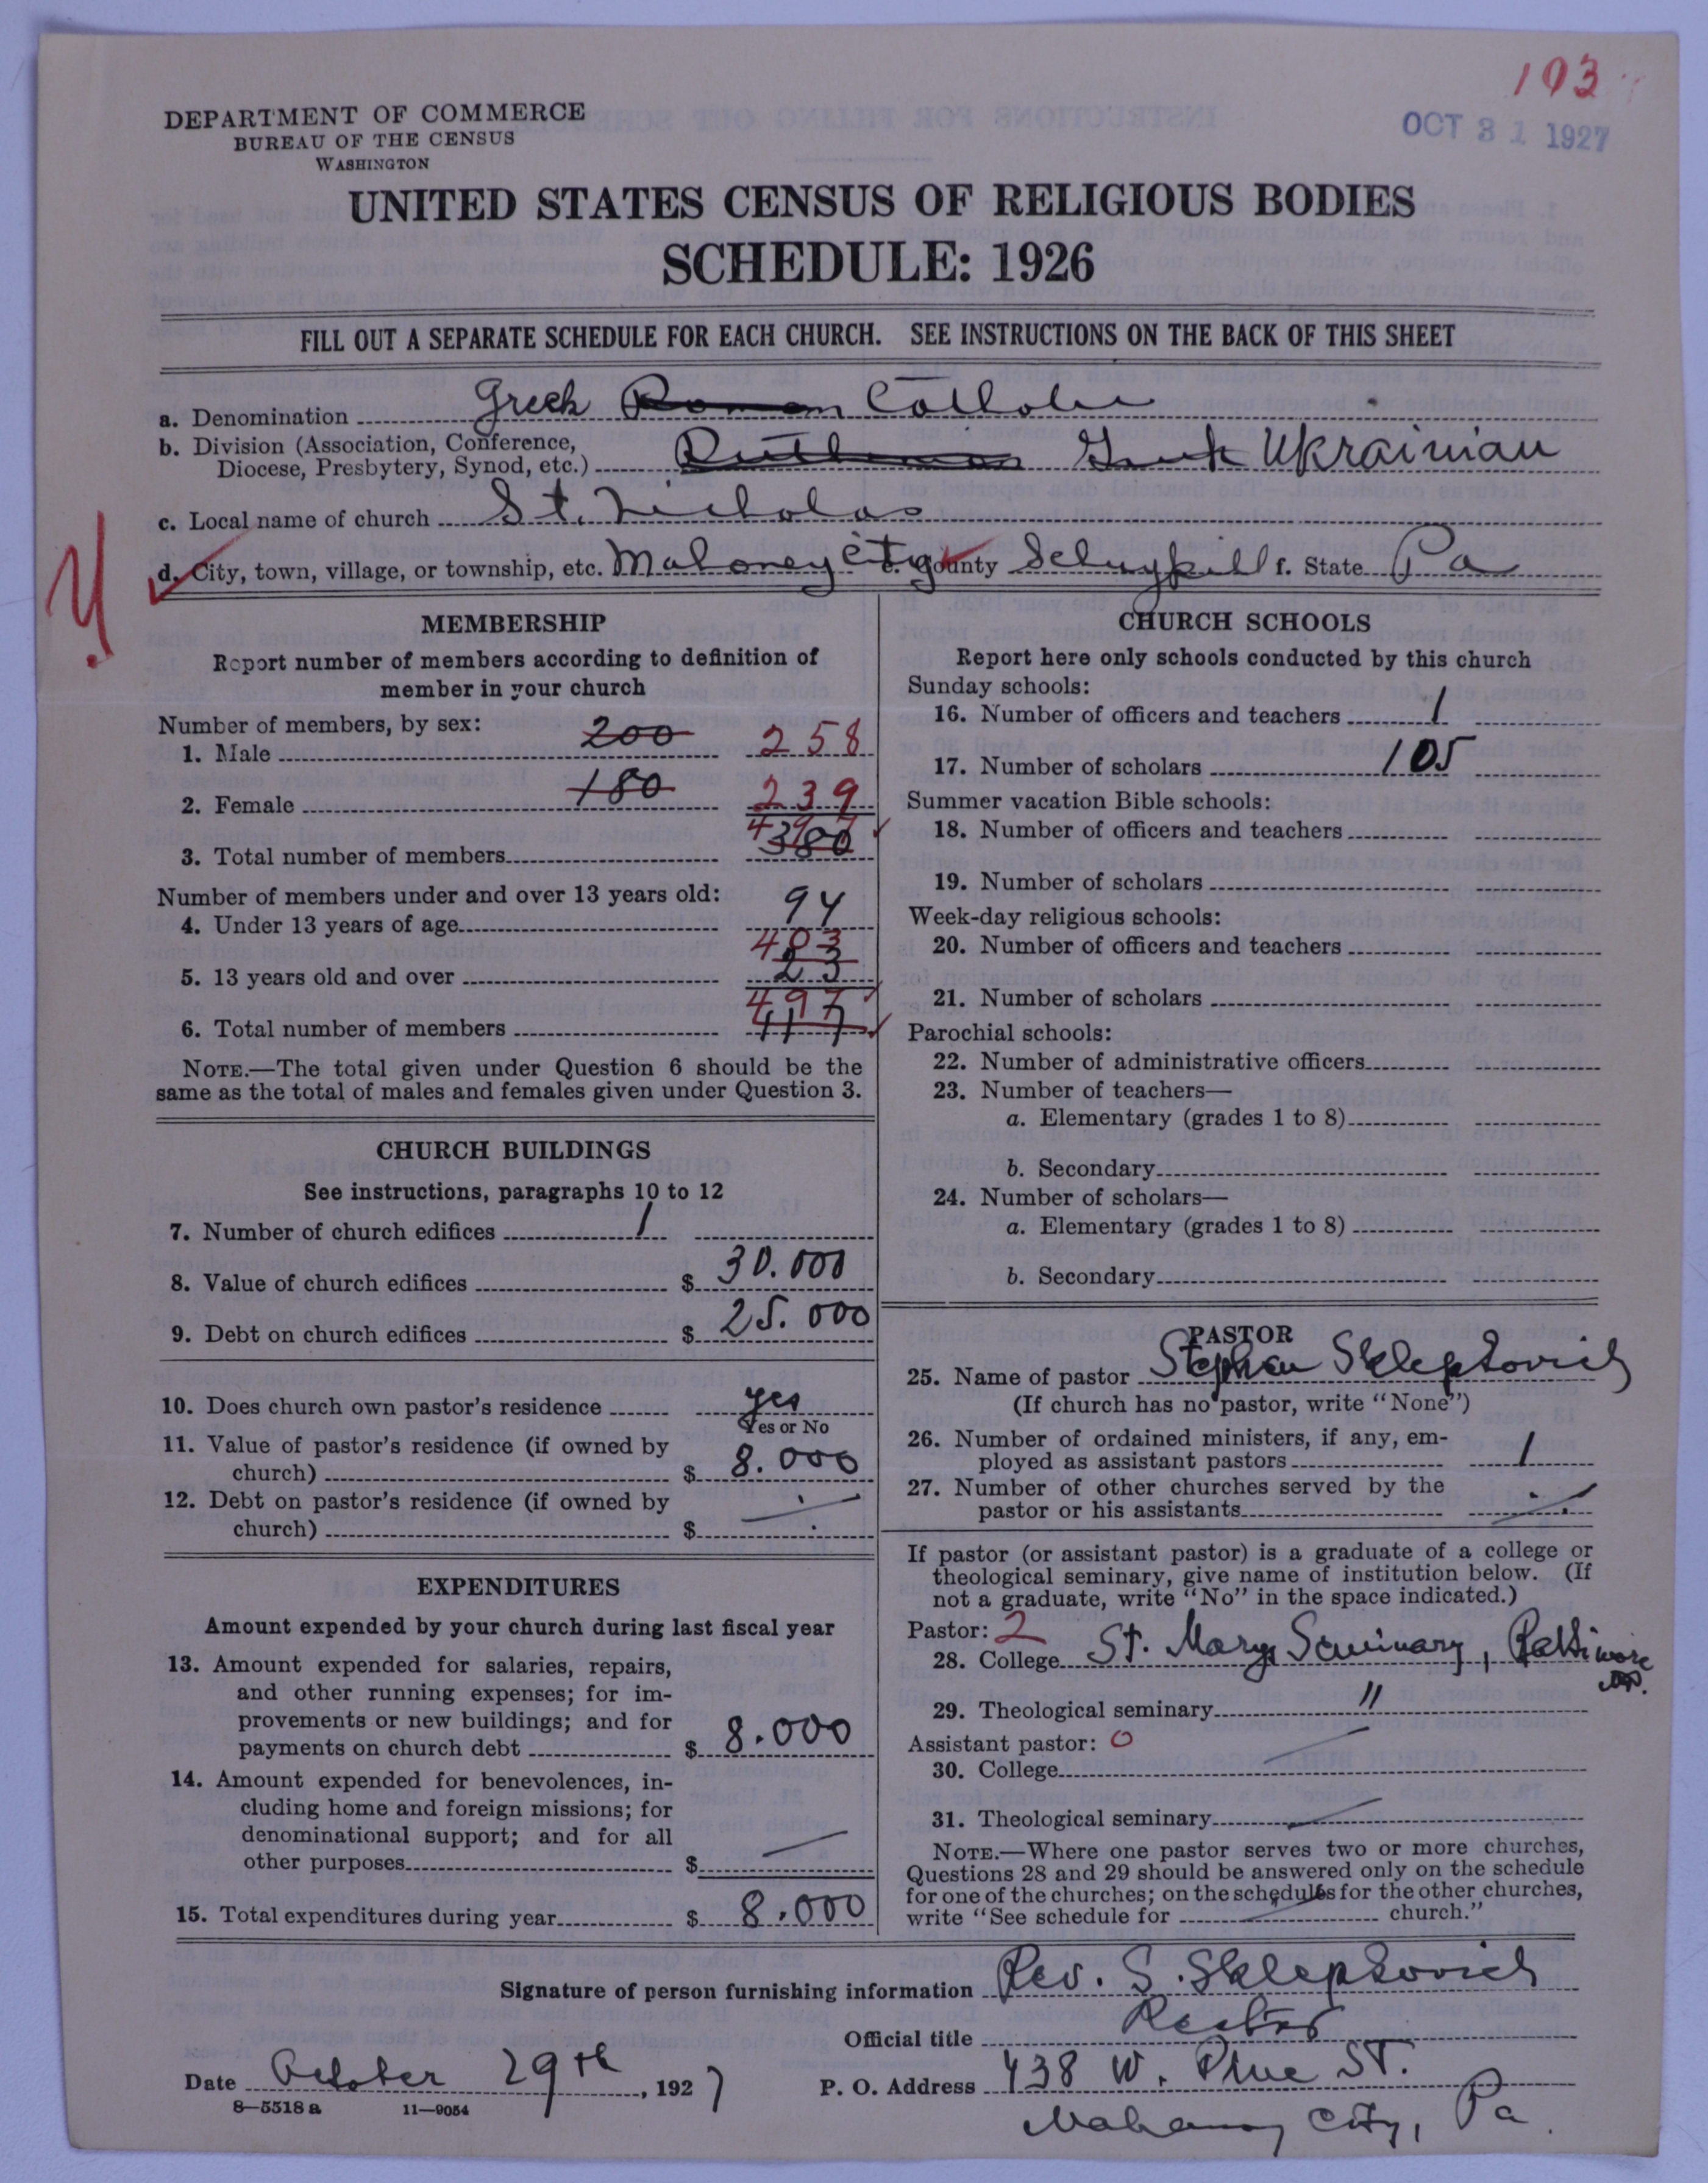 193
OCT 31 1927
DEPARTMENT OF COMMERCE
BUREAU OF THE CENSUS
WASHINGTON
UNITED STATES CENSUS OF RELIGIOUS BODIES
SCHEDULE: 1926
FILL OUT A SEPARATE SCHEDULE FOR EACH CHURCH. SEE INSTRUCTIONS ON THE BACK OF THIS SHEET
a. Denomination Greek Roman Catholic
b. Division (Association, Conference,
Diocese, Presbytery, Synod, etc.) Ruthenian Greek Ukrainian
c. Local name of church St. Nicholas
d. City, town, village, or township, etc. Mahoney City e. County Schuylkill f. State Pa
MEMBERSHIP
Report number of members according to definition of
member in your church
Number of members, by sex:
1. Male 200 258
2. Female 180 239
3. Total number of members 497 380
Number of members under and over 13 years old:
4. Under 13 years of age 94
5. 13 years old and over 403 23
6. Total number of members 497 117
NOTE.—The total given under Question 6 should be the
same as the total of males and females given under Question 3.
CHURCH BUILDINGS
See instructions, paragraphs 10 to 12
7. Number of church edifices 1
8. Value of church edifices $ 30.000
9. Debt on church edifices $ 25.000
10. Does church own pastor's residence yes
Yes or No
11. Value of pastor's residence (if owned by
church) $ 8.000
12. Debt on pastor's residence (if owned by
church) $
EXPENDITURES
Amount expended by your church during last fiscal year
13. Amount expended for salaries, repairs,
and other running expenses; for im-
provements or new buildings; and for
payments on church debt $ 8.000
14. Amount expended for benevolences, in-
cluding home and foreign missions; for
denominational support; and for all
other purposes $ —
15. Total expenditures during year $ 8.000
CHURCH SCHOOLS
Report here only schools conducted by this church
Sunday schools:
16. Number of officers and teachers 1
17. Number of scholars 105
Summer vacation Bible schools:
18. Number of officers and teachers
19. Number of scholars
Week-day religious schools:
20. Number of officers and teachers
21. Number of scholars
Parochial schools:
22. Number of administrative officers
23. Number of teachers—
a. Elementary (grades 1 to 8)
b. Secondary
24. Number of scholars—
a. Elementary (grades 1 to 8)
b. Secondary
PASTOR
25. Name of pastor Stephen Sklepkovich
(If church has no pastor, write "None")
26. Number of ordained ministers, if any, em-
ployed as assistant pastors 1
27. Number of other churches served by the
pastor or his assistants
If pastor (or assistant pastor) is a graduate of a college or
theological seminary, give name of institution below. (If
not a graduate, write "No" in the space indicated.)
Pastor: 2
28. College St. Marys Seminary, Baltimore
29. Theological seminary "
Assistant pastor: 0
30. College —
31. Theological seminary —
NOTE.—Where one pastor serves two or more churches,
Questions 28 and 29 should be answered only on the schedule
for one of the churches; on the schedules for the other churches,
write "See schedule for church."
Signature of person furnishing information Rev. S. Sklepkovich
Official title Rector
Date October 29th, 1927
P. O. Address 438 W. Pine St.
Mahanoy City, Pa.
8—5518 a 11—9054